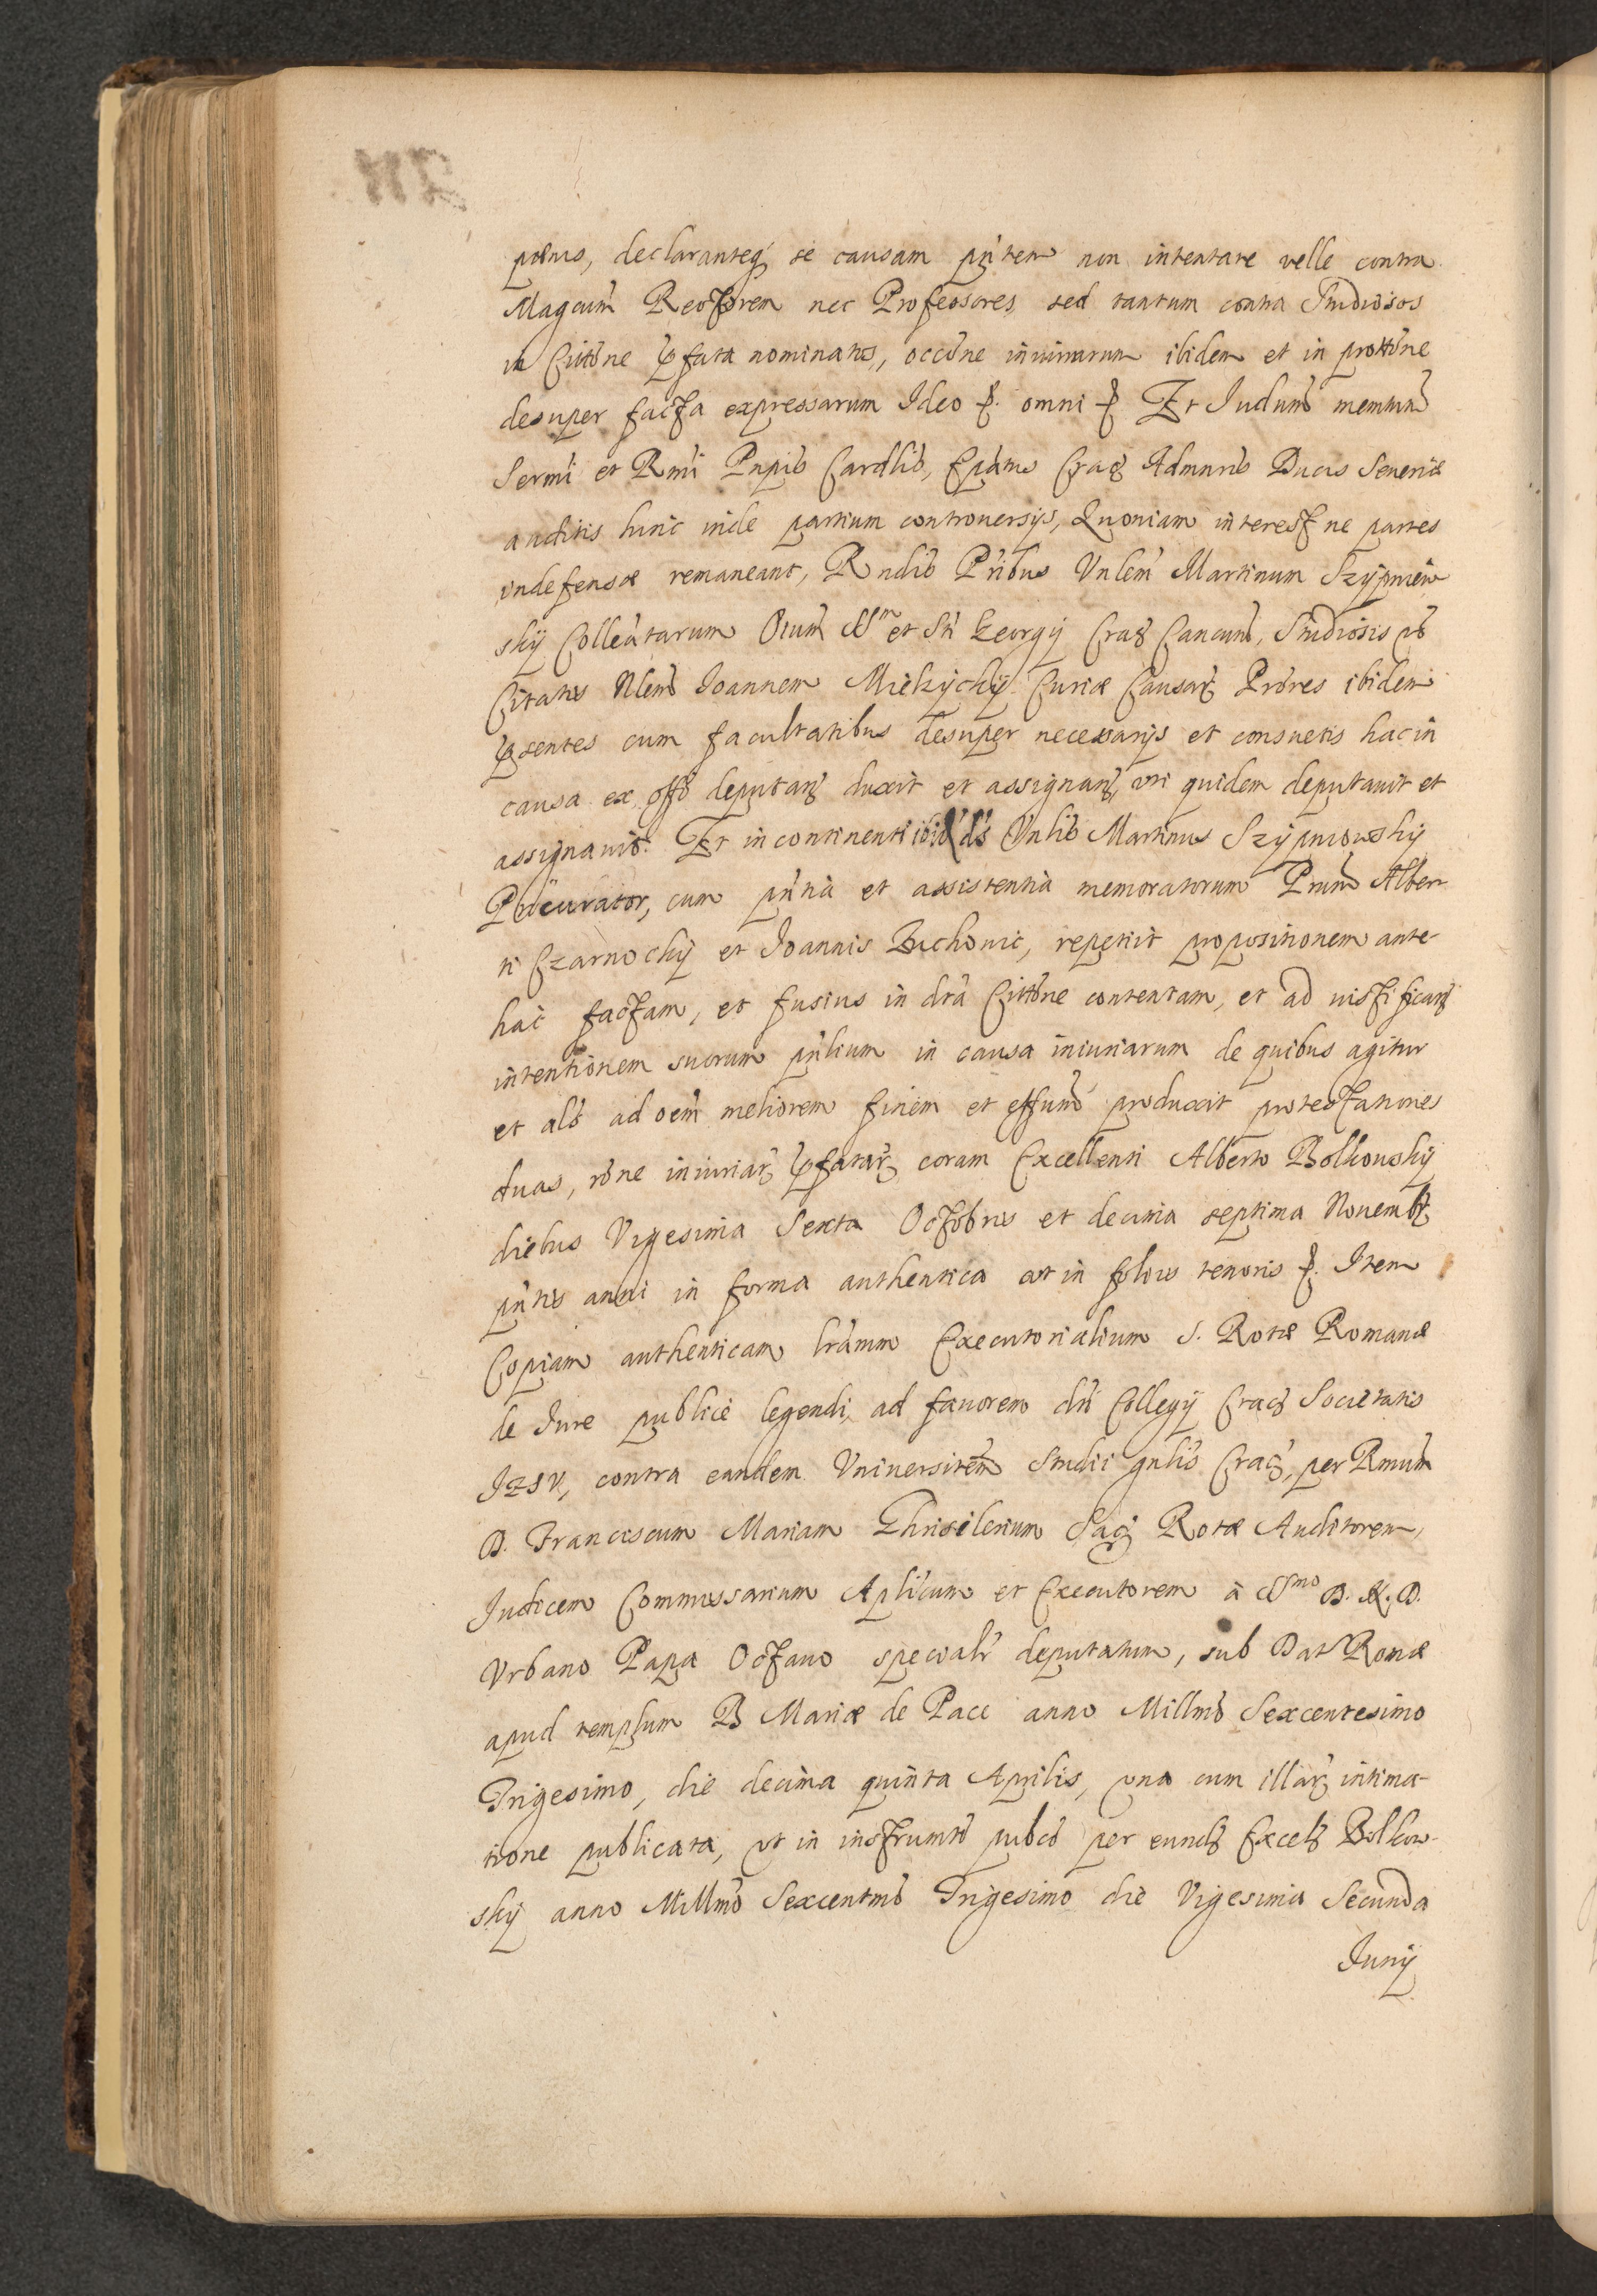 declaranteq se causam pñtem non intentare velle contra
Magcum̃ Rectorem nec Professores sed tantum contra Studiosos
in Citt̃one p̱fata nominatos, occ̃one iniuriarum ibidem et in prott̃one
desuper facta expressarum Ideo omni Et Iudiũm
Sermi et Rm̃i Pnpis Cardlis, Cracͥ Ducis Seueriæ
auditis hinc inde partium controuersijs, Quoniam interest ne partes
indefensæ remaneant, Rndis Pr̃ibus Vnlem̃ Martinum Szijpniew
skij Collegiatarum Oium̃ SSm et Sti Georgij Crac Studiosis
Citatis Nlem̃ Ioannem Curiæ Causarꝫ Pr̃ores ibidem
p̱sentes cum facultatibus desuper necessarijs et consuetis hac in
causa ex offo deputarꝫ duxit et assignarꝫ, vti quidem deputauit et
assignauit. Et in continenti ibid ds Vnlis Martinus Szijpniowskij
Procurator, cum pñtia et assistentia memoratorum Prum̃ Alber
ti Czarnockij et Ioannis Buchowic, repetiit propositionem ante
hac factam, et fusius in dta Citt̃one contentam, et ad iustificanꝫ
intentionem suorum pñlium in causa iniuriarum de quibus agitur
et als ad oem̃ meliorem finem et effum̃ produxit protestationes
duas, rõne iniuriarꝫ p̱fatarꝫ coram Excellenti Alberto Bolkowskij
diebus Vigesima Sexta Octobris et decima septima Nouembꝫ
pñtis anni in forma authentica vt in folijs tenoris Item
Copiam authenticam lrãrum Executorialium S. Rotæ Romanæ
de Iure publicè legendi, ad fauorem dti Collegij Cracꝫ Societatis
IESV, contra eandem Vniuersitem̃ Studii gnlis Cracꝫ, per Rmum̃
D. Franciscum Mariam Ghrisilerium Sacꝫ Rotæ Auditorem,
Iudicem Commissarium Aplicum et Executorem à SSmo D. N. D.
Vrbano Papa Octauo specialr deputatum, sub Dat Romæ
apud templum B Mariæ de Pace anno Millmo Sexcentesimo
Trigesimo, die decima quinta Aprilis, vna cum illarꝫ intima-
tione publicata, vt in instrumto pubco per eundꝫ Excelꝫ Bolkow-
skij anno Millmo Sexcentmo Trigesimo die Vigesima Secunda
Iunij